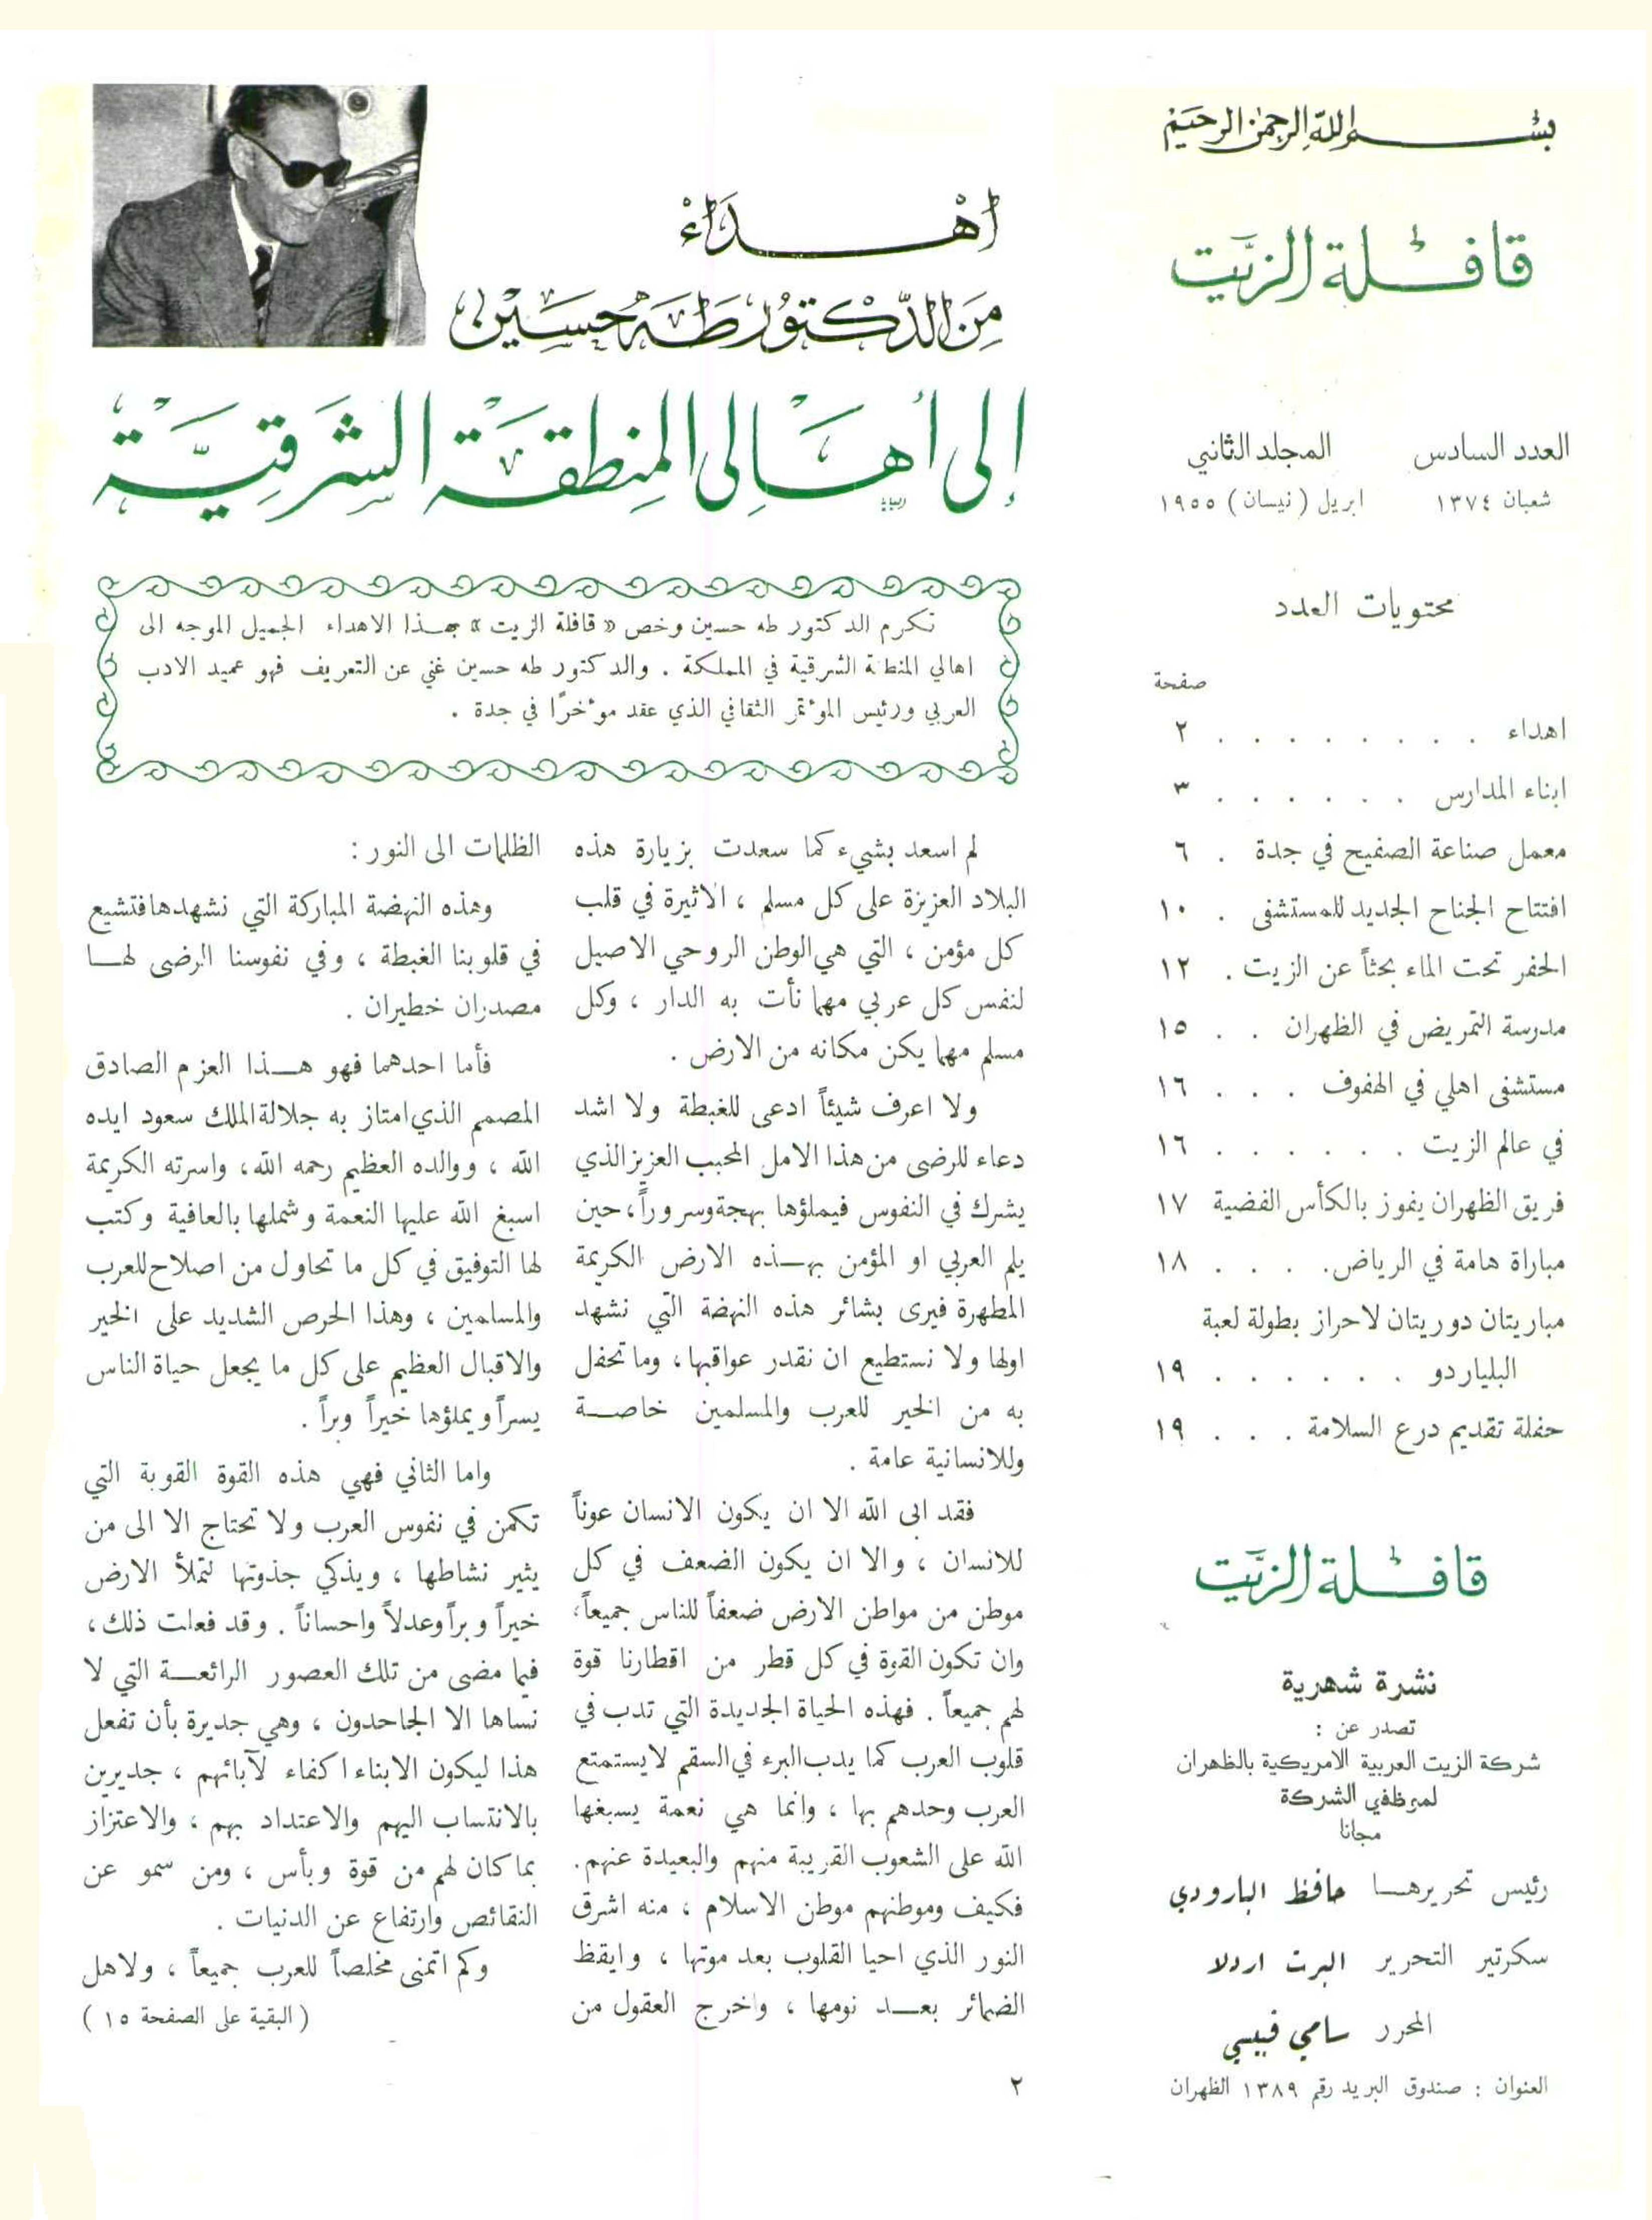 بسم الله الرحمن الرحيم
قافلة الزيت
العدد السادس المجلد الثاني
شعبان ١٣٧٤ ابريل (نيسان) ١٩٥٥
محتويات العدد
صفحة
اهداء . . . . . . . . ٢
ابناء المدارس . . . . . . ٣
معمل صناعة الصفيح في جدة . ٦
افتتاح الجناح الجديد للمستشفى . ١٠
الحفر تحت الماء بحثاً عن الزيت . ١٢
مدرسة التمريض في الظهران . . ١٥
مستشفى اهلي في الهفوف . . . ١٦
في عالم الزيت . . . . . . ١٦
فريق الظهران يفوز بالكأس الفضية ١٧
مباراة هامة في الرياض . . . . ١٨
مباريتان دوريتان لاحراز بطولة لعبة
البلياردو . . . . . . ١٩
حفلة تقديم درع السلامة . . . ١٩
قافلة الزيت
نشرة شهرية
تصدر عن :
شركة الزيت العربية الامريكية بالظهران
لموظفي الشركة
مجانا
رئيس تحريرهـا حافظ البارودي
سكرتير التحرير البرت اردلا
المحرر سامي قبيسي
العنوان : صندوق البريد رقم ١٣٨٩ الظهران
اهداء
من الدكتور طه حسين
إلى أهالي المنطقة الشرقية
تكرم الدكتور طه حسين وخص « قافلة الزيت » بهـذا الاهداء الجميل الموجه الى
اهالي المنطقة الشرقية في المملكة . والدكتور طه حسين غني عن التعريف فهو عميد الادب
العربي ورئيس المؤتمر الثقافي الذي عقد مؤخرًا في جدة .
لم اسعد بشيء كما سعدت بزيارة هذه
البلاد العزيزة على كل مسلم ، الاثيرة في قلب
كل مؤمن ، التي هي الوطن الروحي الاصيل
لنفس كل عربي مهما نأت به الدار ، وكل
مسلم مهما يكن مكانه من الارض .
ولا اعرف شيئاً ادعى للغبطة ولا اشد
دعاء للرضى من هذا الامل المحبب العزيز الذي
يشرك في النفوس فيملؤها بهجة وسروراً ، حين
يلم العربي او المؤمن بهـذه الارض الكريمة
المطهرة فيرى بشائر هذه النهضة التي نشهد
اولها ولا نستطيع ان نقدر عواقبها ، وما تحفل
به من الخير للعرب والمسلمين خاصـة
وللانسانية عامة .
فقد ابى الله الا ان يكون الانسان عوناً
للانسان ، والا ان يكون الضعف في كل
موطن من مواطن الارض ضعفاً للناس جميعاً ،
وان تكون القوة في كل قطر من اقطارنا قوة
لهم جميعاً . فهذه الحياة الجديدة التي تدب في
قلوب العرب كما يدب البرء في السقم لا يستمتع
العرب وحدهم بها ، وانما هي نعمة يسبغها
الله على الشعوب القريبة منهم والبعيدة عنهم .
فكيف وموطنهم موطن الاسلام ، منه اشرق
النور الذي احيا القلوب بعد موتها ، وايقظ
الضمائر بعـد نومها ، واخرج العقول من
الظلمات الى النور :
وهذه النهضة المباركة التي نشهدها فتشيع
في قلوبنا الغبطة ، وفي نفوسنا الرضى لهـا
مصدران خطيران .
فأما احدهما فهو هـذا العزم الصادق
المصمم الذي امتاز به جلالة الملك سعود ايده
الله ، ووالده العظيم رحمه الله ، واسرته الكريمة
اسبغ الله عليها النعمة وشملها بالعافية وكتب
لها التوفيق في كل ما تحاول من اصلاح للعرب
والمسلمين ، وهذا الحرص الشديد على الخير
والاقبال العظيم على كل ما يجعل حياة الناس
يسراً ويملؤها خيراً وبراً .
واما الثاني فهي هذه القوة القوية التي
تكمن في نفوس العرب ولا تحتاج الا الى من
يثير نشاطها ، ويذكي جذوتها لتملأ الارض
خيراً وبراً وعدلاً واحساناً . وقد فعلت ذلك ،
فيما مضى من تلك العصور الرائعـة التي لا
نساها الا الجاحدون ، وهي جديرة بأن تفعل
هذا ليكون الابناء اكفاء لآبائهم ، جديرين
بالانتساب اليهم والاعتداد بهم ، والاعتزاز
بما كان لهم من قوة وبأس ، ومن سمو عن
النقائص وارتفاع عن الدنيات .
وكم اتمنى مخلصاً للعرب جميعاً ، ولاهل
( البقية على الصفحة ١٥ )
٢